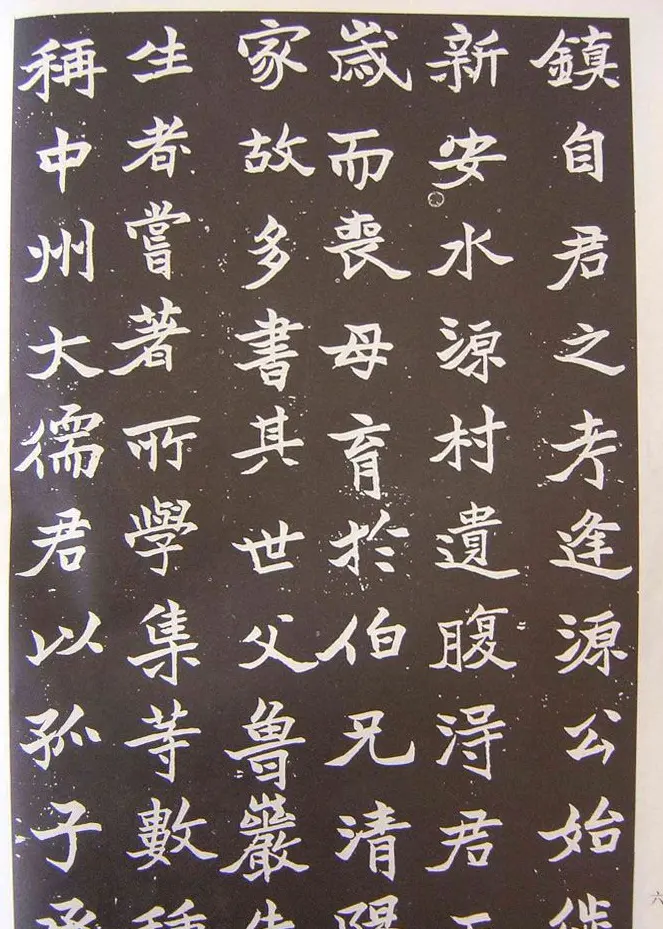 鎮自君之考逢源公始徙
新安水源村遺腹淂君
歲而喪母育於伯兄清陽
家故多書其世父魯巖先
生者嘗著所學集等數種
稱中州大儒君以孤子承
六